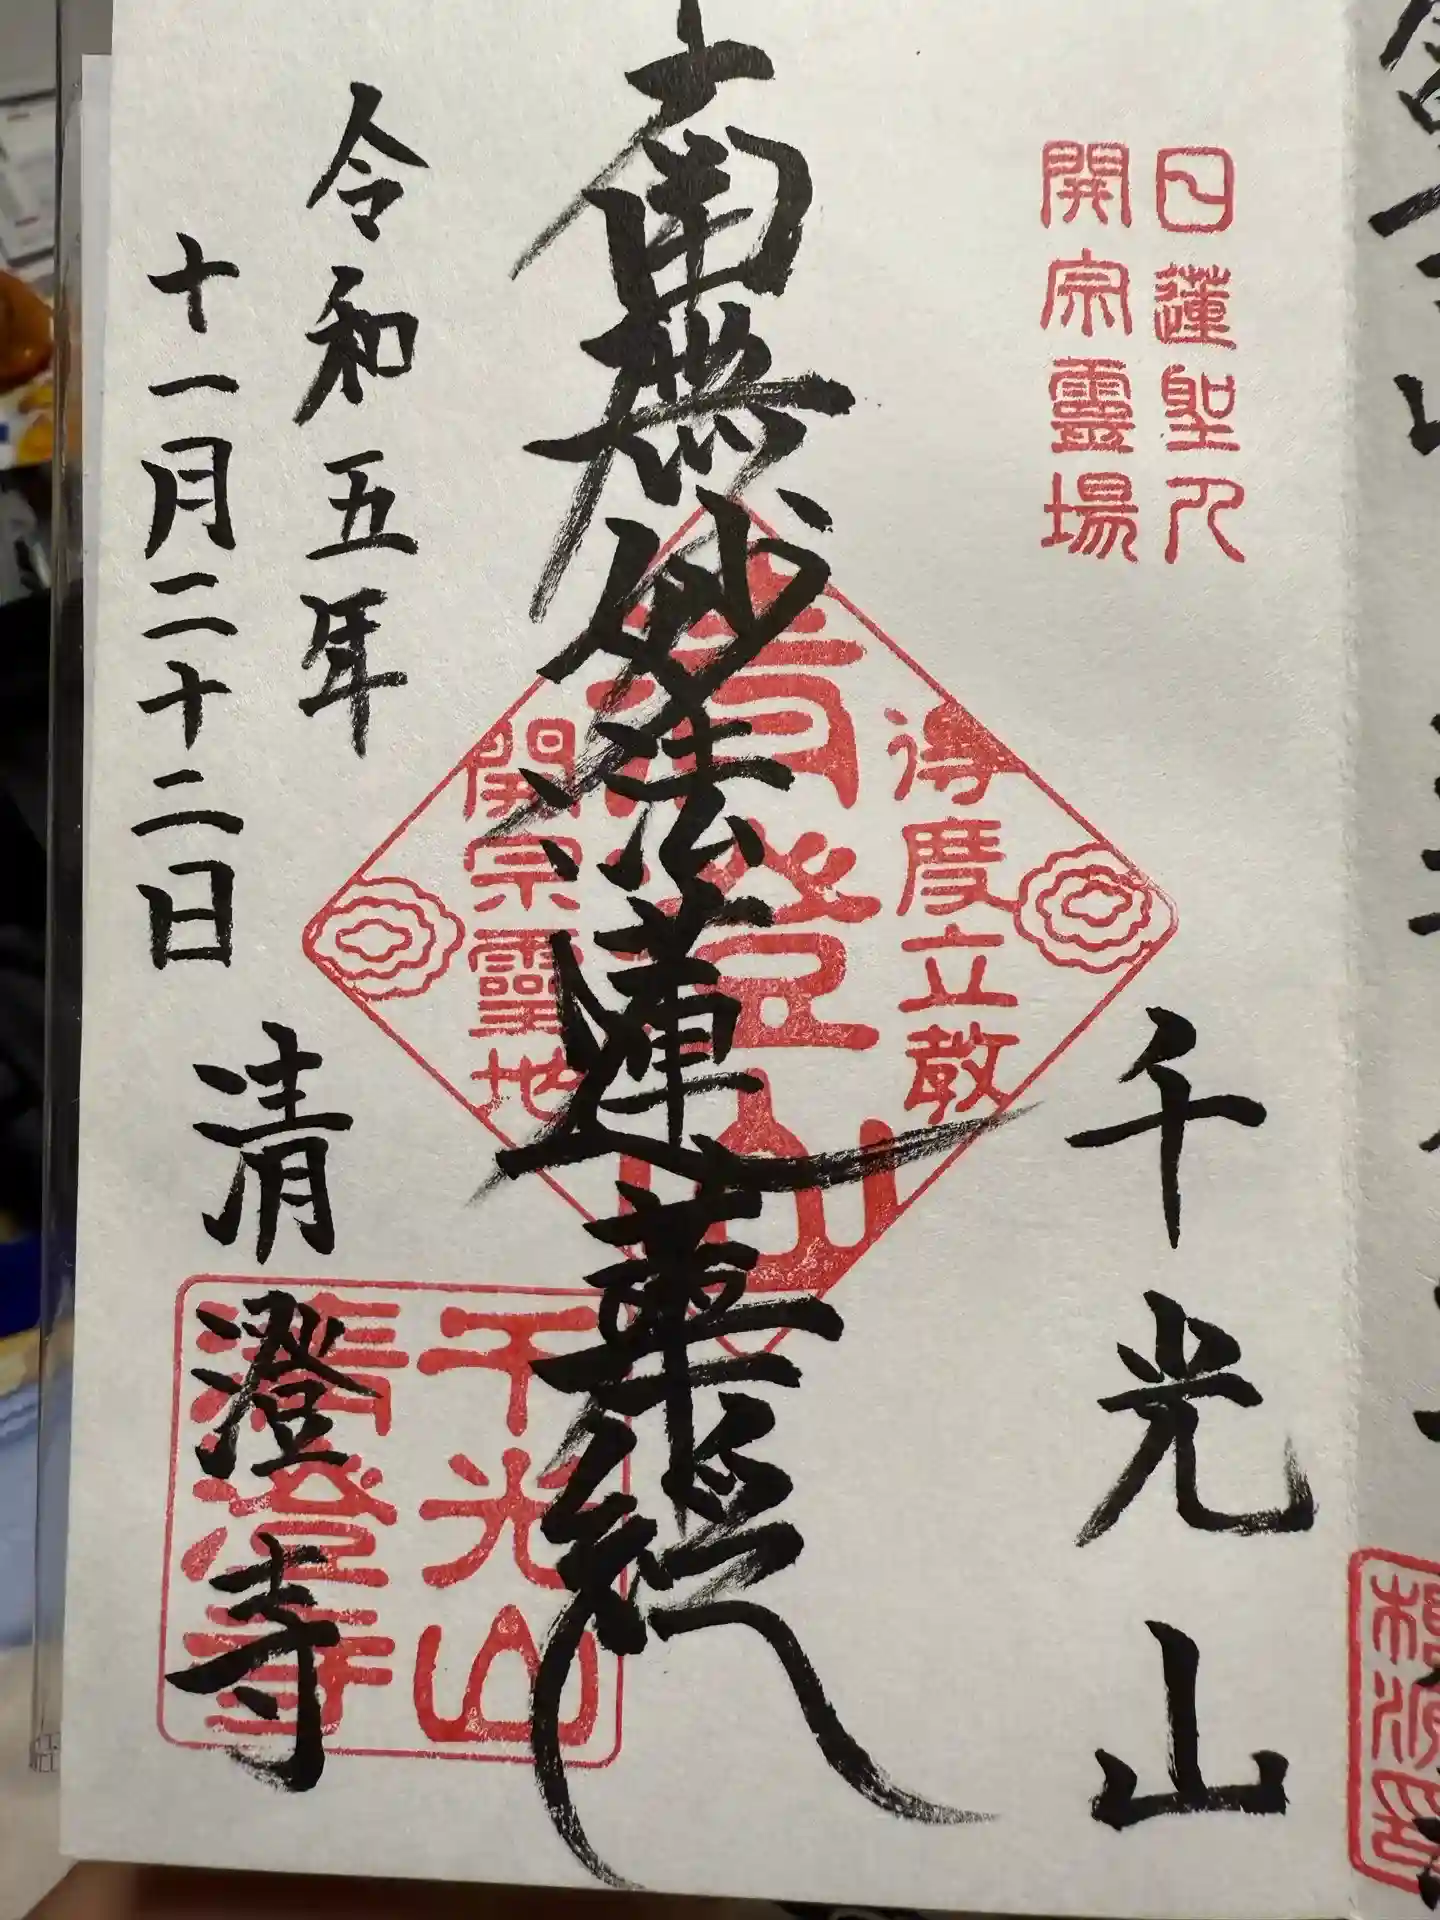 日蓮聖人
開宗靈場
千光山
南無妙法蓮華経
得度立教
清澄山
開宗靈地
令和五年
十一月二十二日
清澄寺
千光山
清澄寺